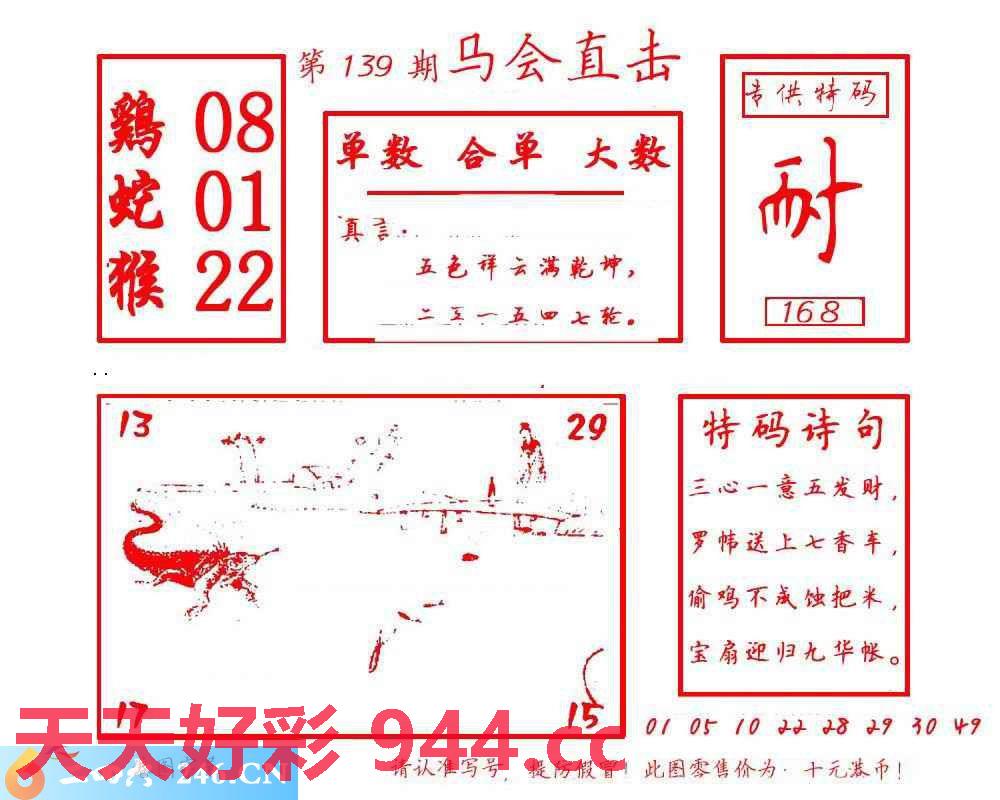 第139期马会直击
鷄 08
蛇 01
猴 22
单数 合单 大数
真言:
五色祥云满乾坤,
二三一五四七轮。
专供特码
耐
168
13
29
17
15
特码诗句
三心一意五发财,
罗帏送上七香车,
偷鸡不成蚀把米,
宝扇迎归九华帐。
01 05 10 22 28 29 30 49
天天好彩 944.cc
246.CN
请认准写号,提防假冒!此图零售价为·十元港币!